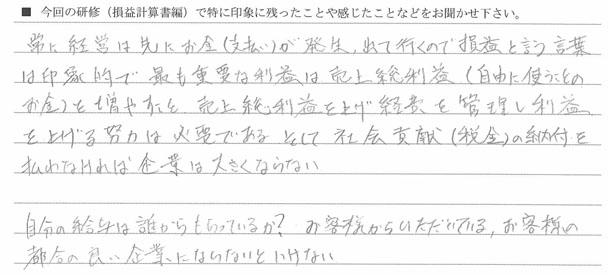 ■ 今回の研修（損益計算書編）で特に印象に残ったことや感じたことなどをお聞かせ下さい。
常に経営は先にお金(支払い)が発生、出て行くので損益と言う言葉
は印象的で最も重要な利益は売上総利益（自由に使うことの
お金）を増やすこと、売上総利益を上げ経費を管理し利益
を上げる努力は必要である そして 社会貢献（税金）の納付を
払わなければ企業は大きくならない
自分の給与は誰からもらっているか？ お客様からいただいている、お客様の
都合の良い企業にならないといけない